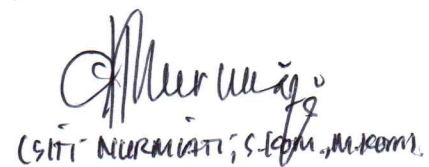 (SITI NURMIATI, S.Kom., M.Kom)